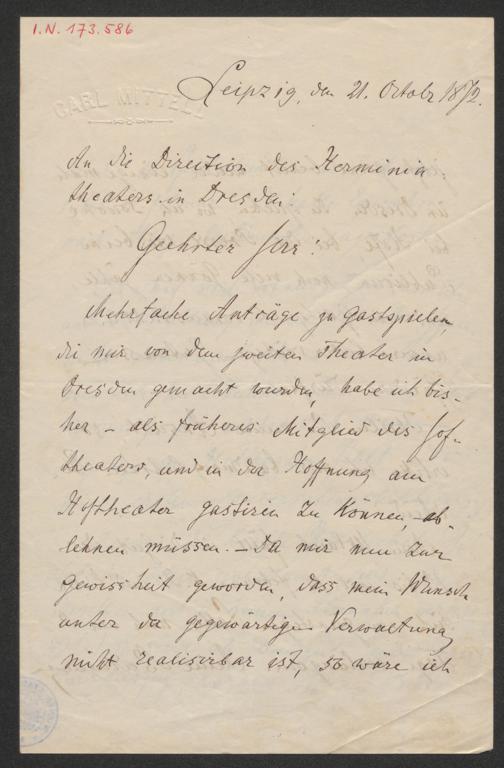 I.N. 173.586
CARL MITTELL
Leipzig, den 21. Octobr 1872.
An die Direction des Herminia-
theaters in Dresden.
Geehrter Herr!
Mehrfache Anträge zu Gastspielen,
die mir von dem zweiten Theater in
Dresden gemacht wurden, habe ich bis-
her – als früheres Mitglied des Hof-
theaters, und in der Hoffnung am
Hoftheater gastiren zu können, – ab-
lehnen müssen. – Da mir nun zur
Gewissheit geworden, dass mein Wunsch
unter der gegenwärtigen Verwaltung
nicht realisirbar ist, so wäre ich